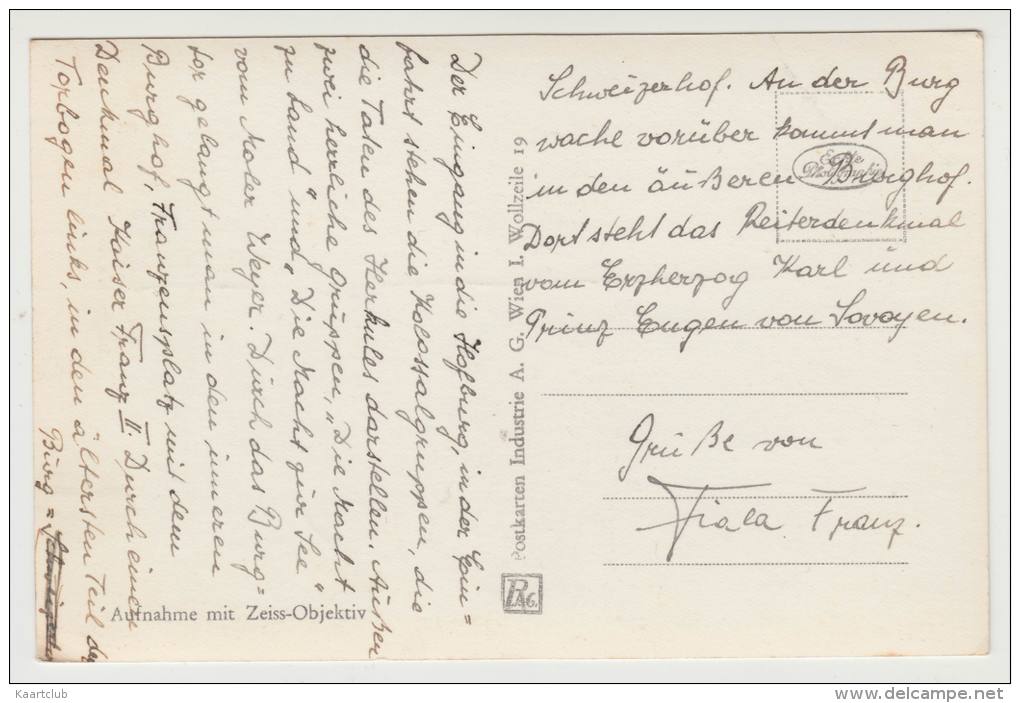 Der Eingang in die Hofburg, in der Ein=
fahrt stehen die Kolossalgruppen, die
die Taten des Herkules darstellen. Außer
zwei herrliche Gruppen, „Die Macht
zu Land" und „Die Macht zur See"
vom Maler Weyer. Durch das Burg=
tor gelangt man in den inneren
Burghof, Franzensplatz mit dem
Denkmal Kaiser Franz II. Durch einen
Torbogen links, in den ältersten Teil der
Burg =
Schweizerhof. An der Burg
wache vorüber kommt man
in den äußeren Burghof.
Dort steht das Reiterdenkmal
vom Erzherzog Karl und
Prinz Eugen von Savoyen.
Grüße von
Fiala Franz.
Echte
Photographie
Postkarten Industrie A. G. Wien I. Wollzeile 19
PAG.
Aufnahme mit Zeiss-Objektiv
Kaartclub
www.delcampe.net